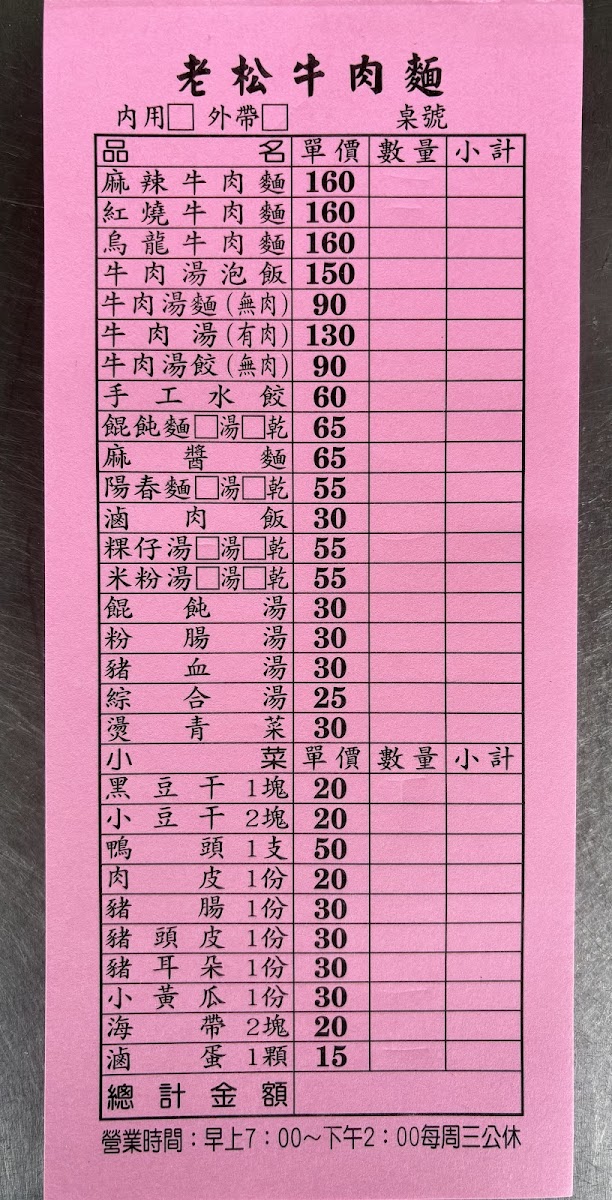 老松牛肉麵
內用□ 外帶□ 桌號
品名 單價 數量 小計
麻辣牛肉麵 160
紅燒牛肉麵 160
烏龍牛肉麵 160
牛肉湯泡飯 150
牛肉湯麵(無肉) 90
牛肉湯(有肉) 130
牛肉湯餃(無肉) 90
手工水餃 60
餛飩麵□湯□乾 65
麻醬麵 65
陽春麵□湯□乾 55
滷肉飯 30
粿仔湯□湯□乾 55
米粉湯□湯□乾 55
餛飩湯 30
粉腸湯 30
豬血湯 30
綜合湯 25
燙青菜 30
小菜 單價 數量 小計
黑豆干1塊 20
小豆干2塊 20
鴨頭1支 50
肉皮1份 20
豬腸1份 30
豬頭皮1份 30
豬耳朵1份 30
小黃瓜1份 30
海帶2塊 20
滷蛋1顆 15
總計金額
營業時間：早上7：00～下午2：00每周三公休